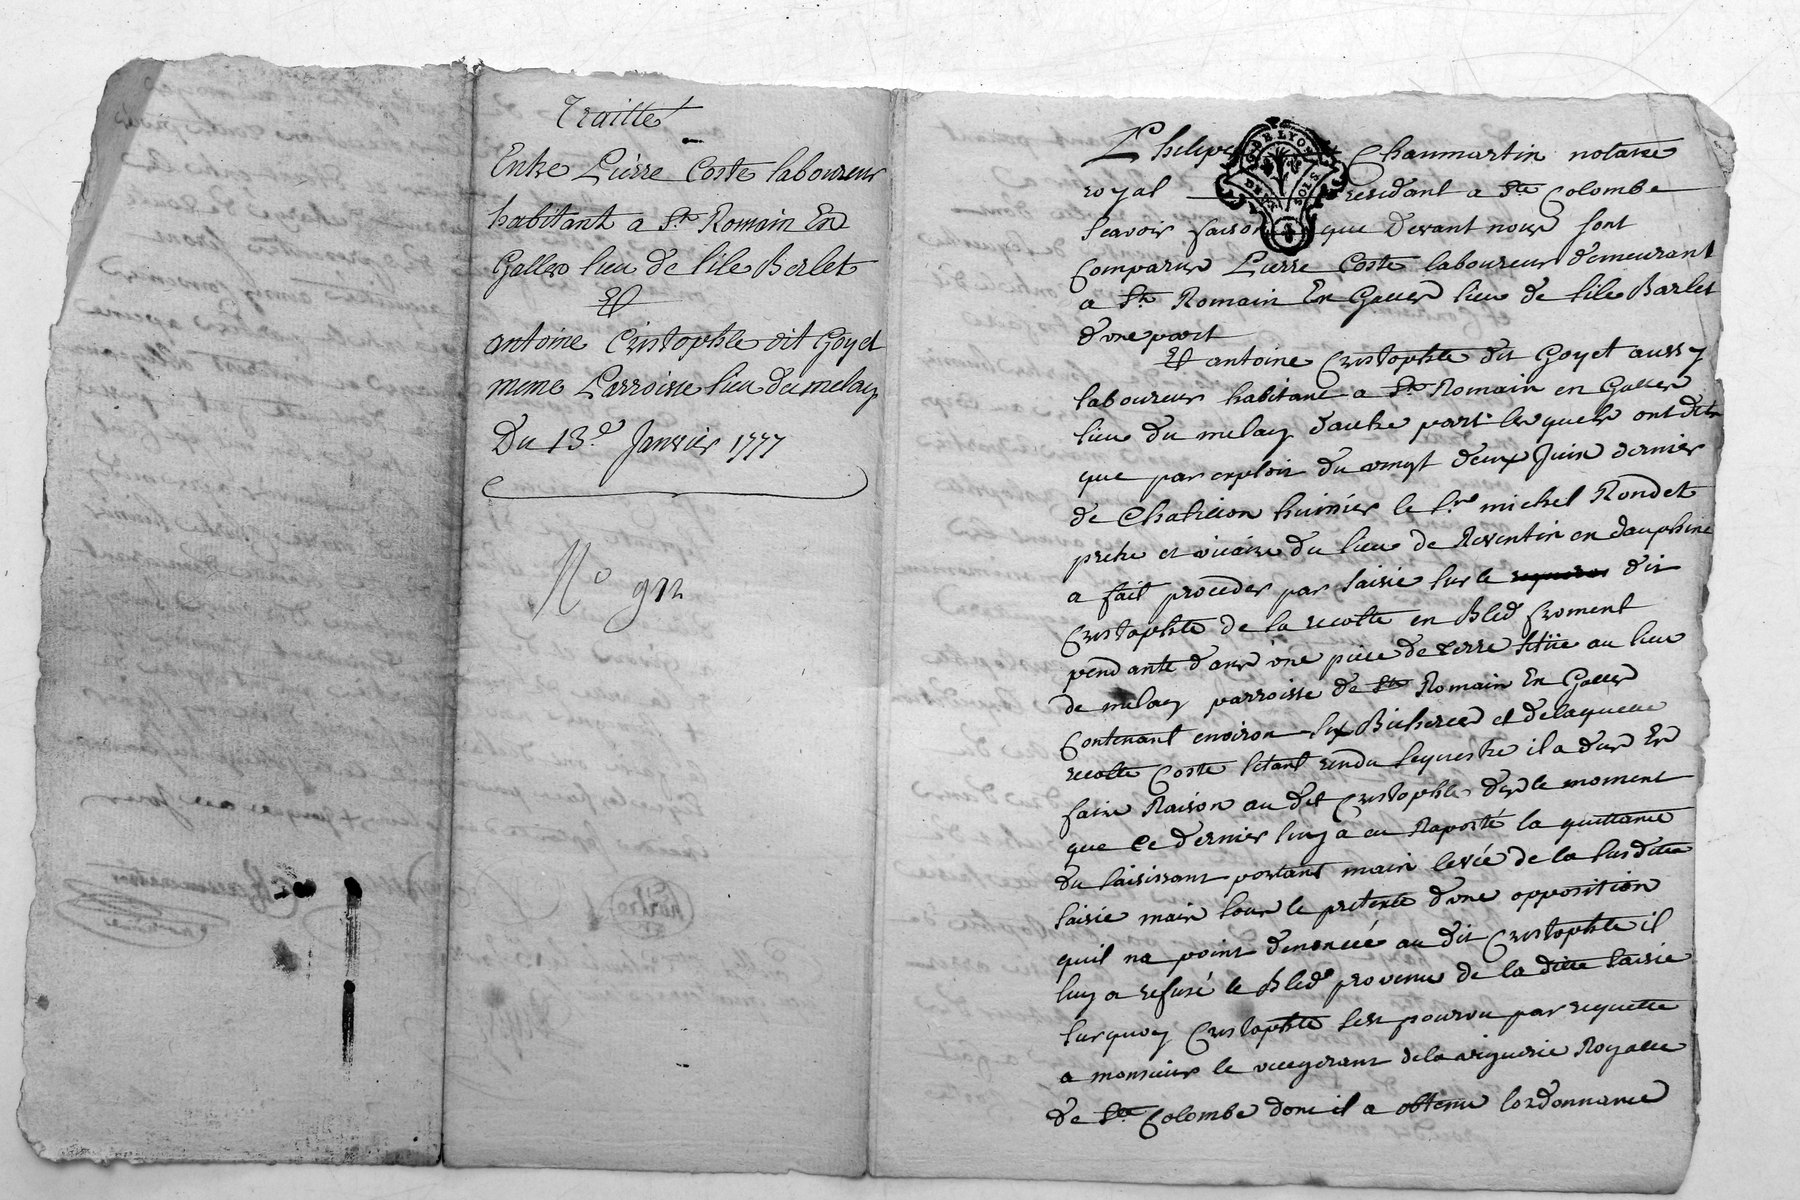 Traitté
Entre Pierre Coste laboureur
habitant a St. Romain En
Galles lieu de l'ile Berlet
Et
antoine Cristophle dit Goyet
meme Parroisse lieu du melay
Du 13.e Janvier 1777
N.o 912
Philipe Chaumartin notaire
royal residant a Ste Colombe
scavoir faisons que devant nous sont
comparus Pierre Coste laboureur demeurant
a St. Romain En Galles lieu de lile Barlet
d'une part
Et antoine Cristophle dit Goyet aussy
laboureur habitant a St. Romain en Galles
lieu du melay d'autre part lesquels ont dit
que par exploit du vingt deux Juin dernier
de Chatillon huissier le Sr. michel Rondet
pretre et vicaire du lieu de Reventin en dauphiné
a fait proceder par saisie sur le dit
Cristophle de la recolte en Bled froment
pendante dans une piece de terre sitüe au lieu
de melay parroisse de St. Romain En Galles
contenant environ six Bicherées et de laquelle
recolte Coste setant rendu sequestre il a deu En
faire Raison au dit Cristophle des le moment
que ce dernier luy a eu Raporté la quittance
du saisissant portant main levée de la susditte
saisie mais sous le pretexte d'une opposition
quil na point denoncée au dit Cristophle il
luy a refusé le Bled provenu de la ditte saisie
surquoy Cristophle sest pourvu par requette
a monsieur le vicegerant de la viguerie Royalle
de Ste. Colombe dont il a obtenu lordonnance
DE LYON
SOLS